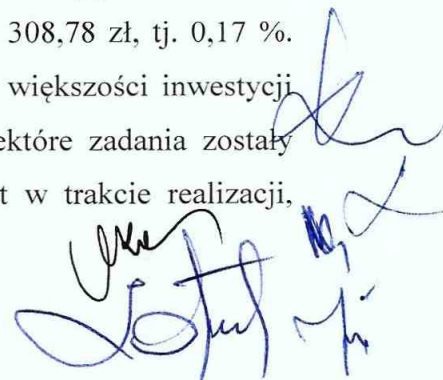 308,78 zł, tj. 0,17 %.
większości inwestycji
ektóre zadania zostały
t w trakcie realizacji,